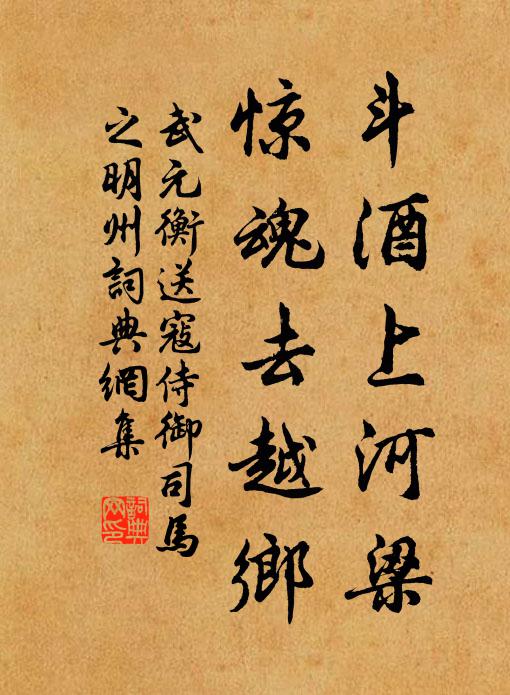 斗酒上河梁
惊魂去越鄉
武元衡送寇侍御司馬
之明州詞典網集
詞典
网印